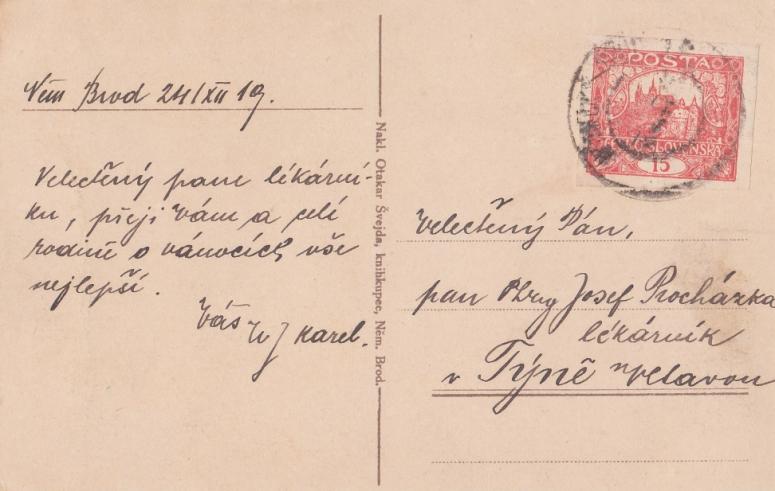 Něm Brod 24/XII 19.
Velectěný pane lékární-
ku, přeji Vám a celé
rodině o vánocích vše
nejlepší.
Váš
Karel.
Nakl. Otakar Švejda, knihkupec, Něm. Brod.
POSTA
ČESKOSLOVENSKÁ
15
Velectěný Pán,
pan Josef Procházka
lékárník
v Týně Vltavou